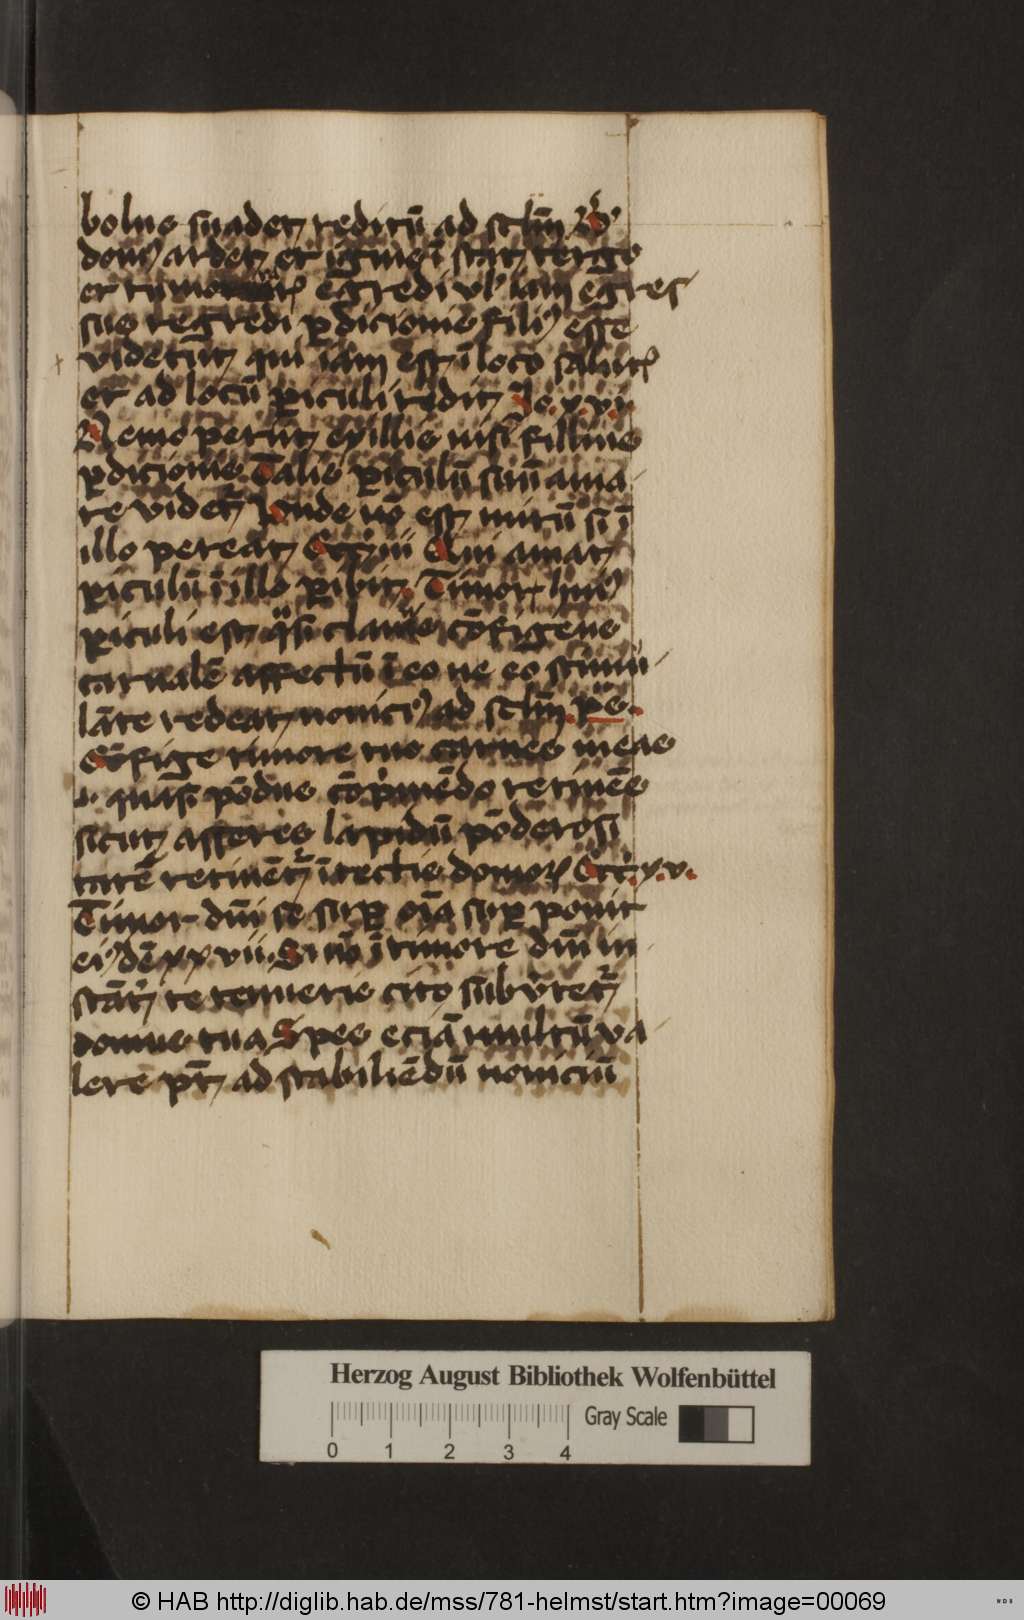 bolus suadet reditū ad sclm̄ Vbi
domꝰ ardet et ignis ī stat tergo
et timor egredi vl iam egres
sus regredi ꝑdicionis filiꝰ esse
videtur qui iam est ī loco salutꝭ
et ad locū ꝑiculi redit Jo. x.v.
Nemo periit ex illis nisi filius
ꝑdicionis Talis ꝑiculū suū ama
re videtr Unde nō est mirū si ī
illo pereat Ecci iii Qui amat
ꝑiculū ī illo ꝑibit Timor huiꝰ
ꝑiculi est quasi clauis cōfigens
carnalē affectū ī eo ne eo stimu
lāte redeat nouiciꝰ ad sclm̄ ps.
Cōfige timore tuo carnes meas
.i. quasi pōdus cōprimēdo retinēs
sicut asseres lapidū pōderosi
tate retinētr ī tectis domoꝝ Ecci. x.v.
Timor dn̄i se suꝑ oīa suꝑ ponit
eiꝰdē xxvii. Si nō ī timore dn̄i in
stātr te tenueris cito subūtetr
domus tua Spes eciā multū va
lere pt̄ ad stabiliēdū nouiciū
Herzog August Bibliothek Wolfenbüttel
Gray Scale
0 1 2 3 4
© HAB http://diglib.hab.de/mss/781-helmst/start.htm?image=00069